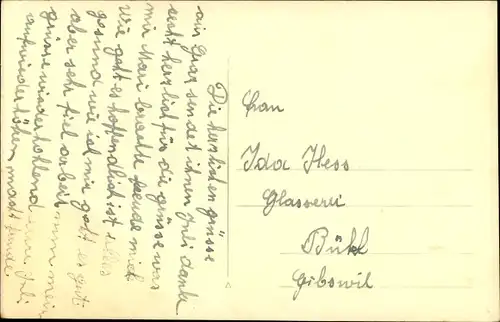 Die herzlichen grüsse
aus Graz sendet ihnen Juli danke
recht herzlich für die grüsse was
mir Mari brachte freude mich
Wie geht es hoffendlich ist alles
gesund wie ist mir geht es gut
aber sehr fiel arbeit nim mein
grüsse wiederhollend Juli
aufwiederhören macht
Frau
Ida Hess
Glasserei
Bühl
Gibswil